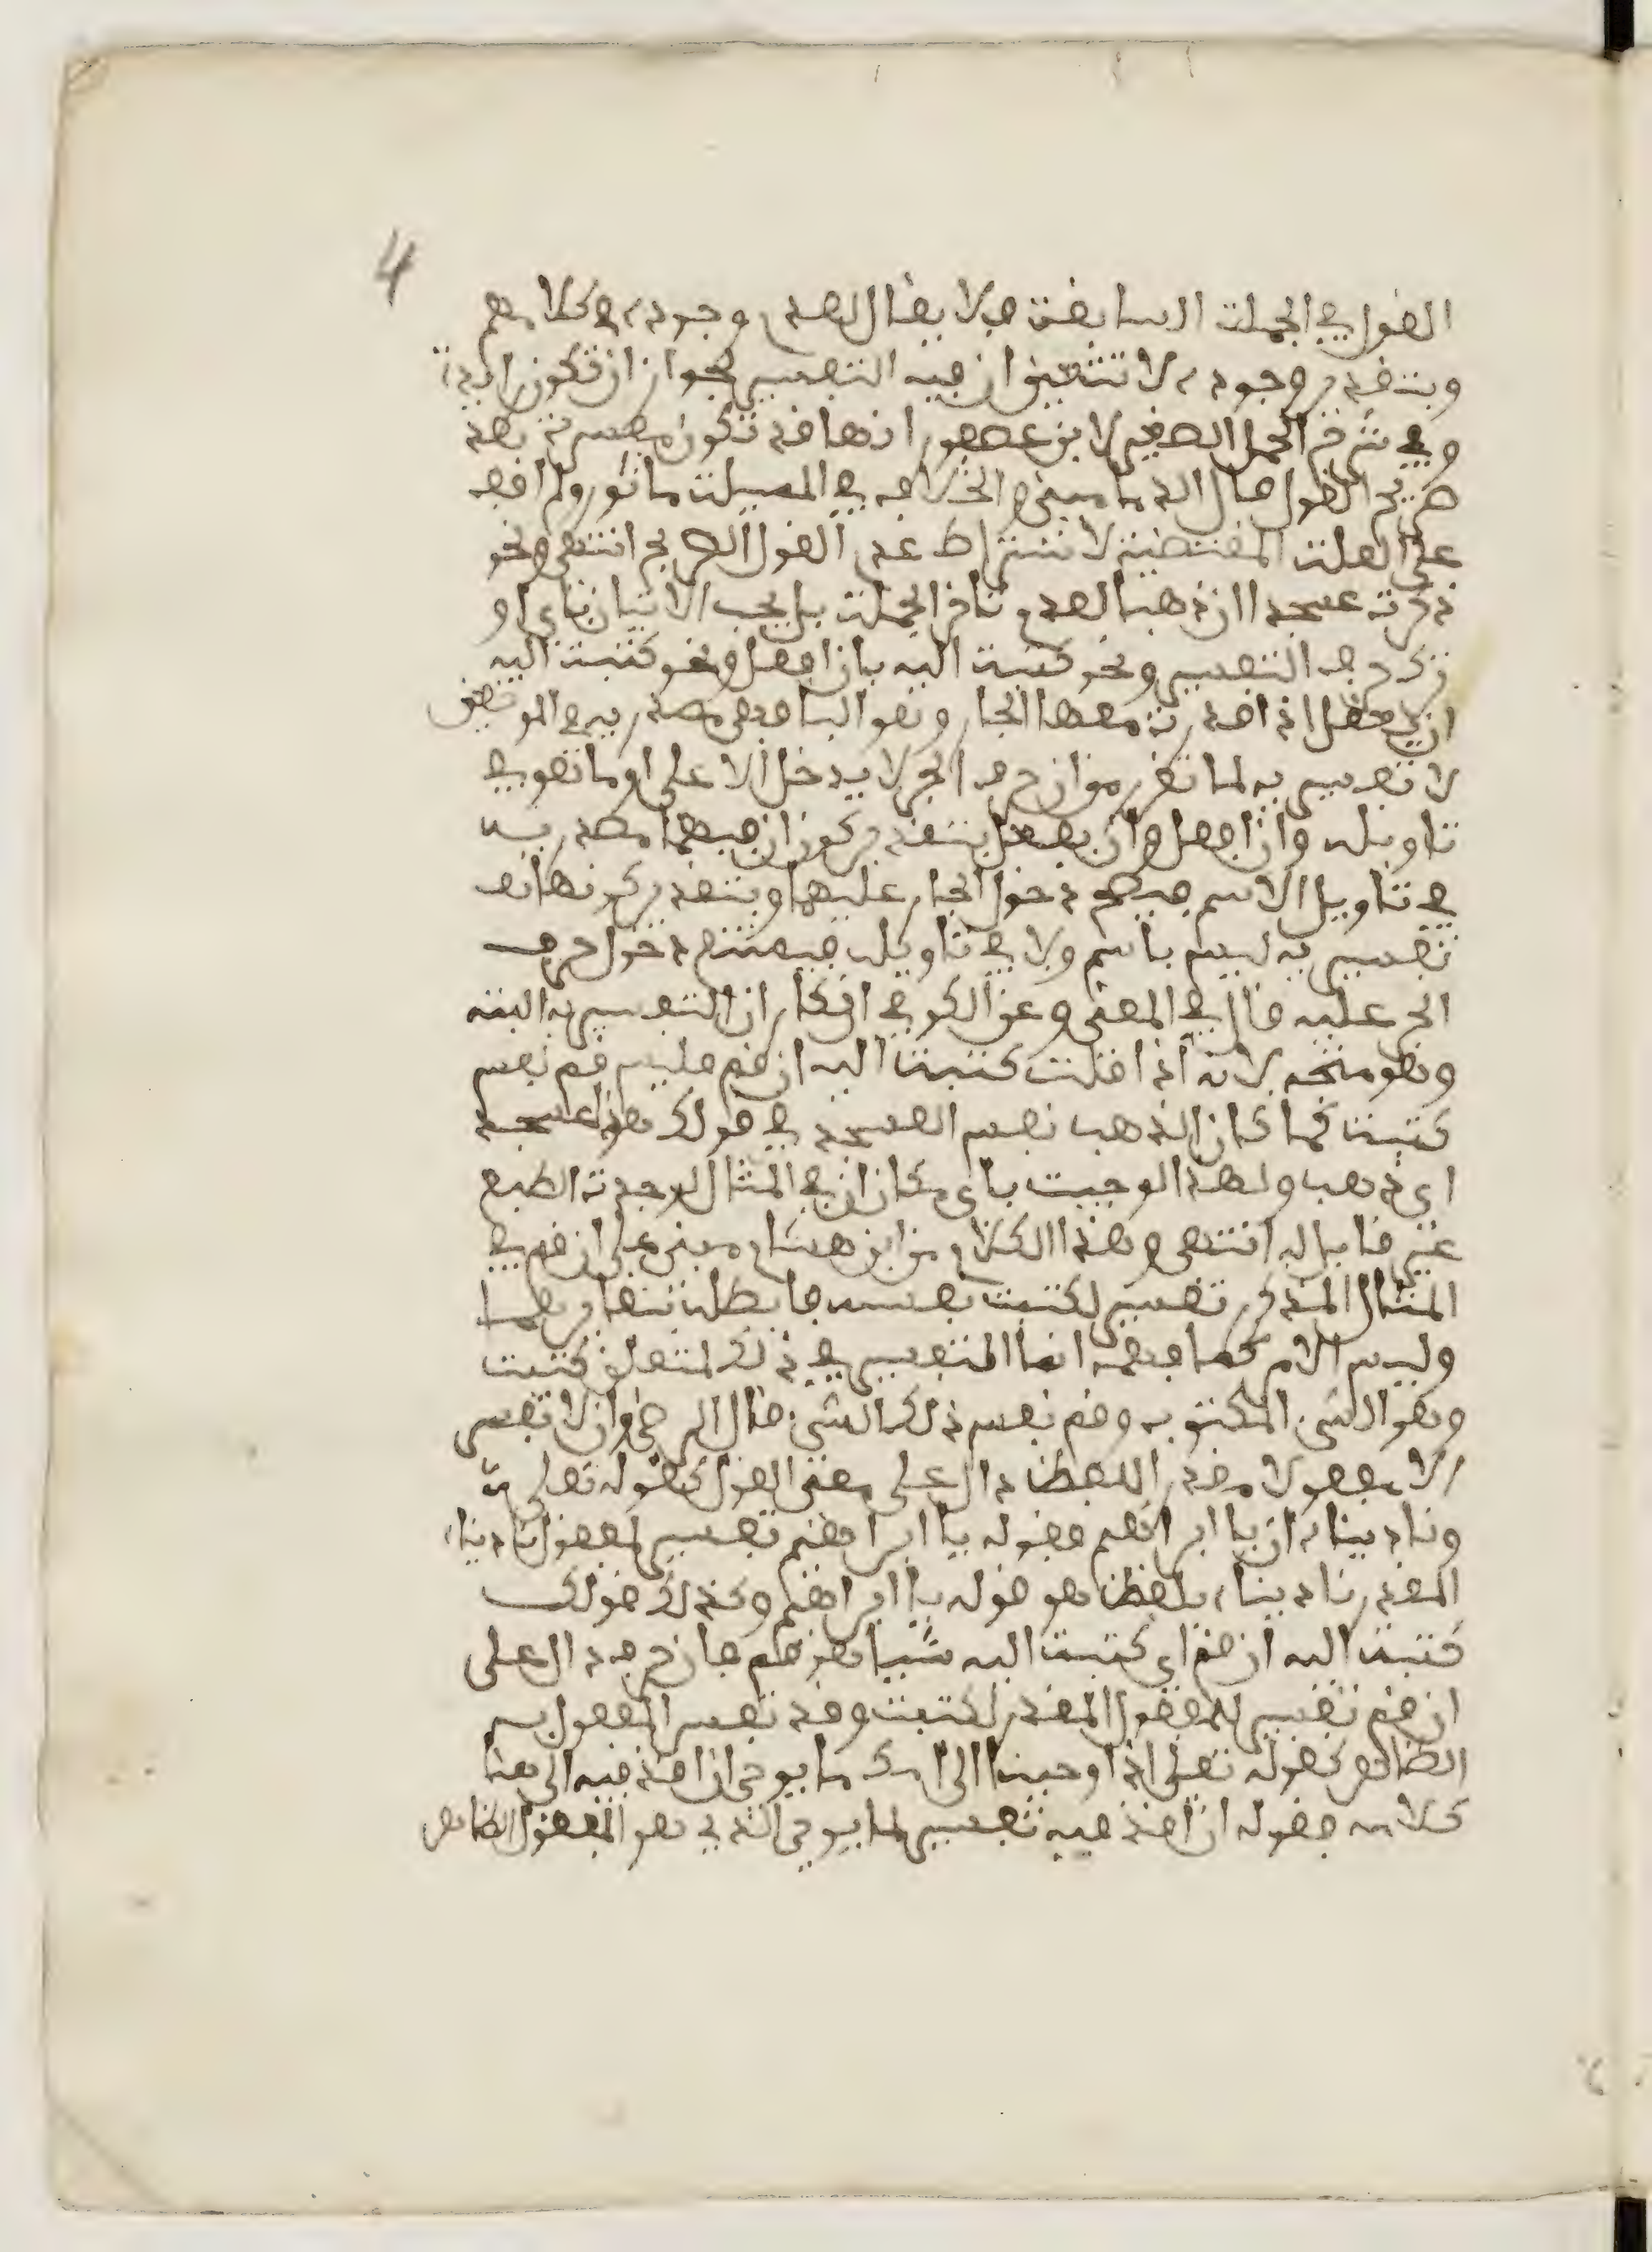 4
القول في الجملة السابقة فلا يقال لعدم وجوده في كلامهم
وبتقدير وجوده لا تتعين ان فيه التفسير لجواز ان تكون زايدة
وفي شرح الجمل الصغير لابن عصفور انها قد تكون مفسرة بعد
صريح القول قال الدماميني والخلاف في المسئلة ماثور ولم اقف
على العلة المقتضية لاشتراط عدم القول الصريح انتهى ونحو
ذكرت عسجدا ان ذهبا لعدم تاخر الجملة بل يجب الاتيان باي او
ترك حرف التفسير ونحو كتبت اليه بان افعل ونحو كتبت اليه
ان يفعل اذا قدرت معها الجار وهو الباء فهي مصدرية في الموضعين
لا تفسيرية لما تقرر من ان حرف الجر لا يدخل الا على او ما هو في
تاويله وان افعل وان يفعل بتقدير كون ان فيهما مصدرية
في تاويل الاسم فيصح دخول الجار عليهما وبتقدير كونها
تفسيرية ليس باسم ولا في تاويله فيمتنع دخول حرف
الجر عليه قال في المغني وعن الكوفي انكار ان التفسيرية البتة
وهو متجه لانه اذا قلت كتبت اليه ان قم فليس قم نفس
كتبت كما كان الذهب نفس العسجد في قولك هذا عسجد
اي ذهب ولهذا لو جيت باي مكان ان في المثال لم تجده الطبع
غير قابل له انتهى وهذا الكلام من ابن هشام مبني على ان قم في
المثال المذكور تفسير لكتبت نفسه فابطله بتغايرهما
وليس الامر كما فهمه انما التفسير في ذلك لمتعلق كتبت
وهو الشيء المكتوب وقم نفس ذلك الشيء قال الرضي وان لا تفسر
الا مفعولا مقدر اللفظ دال على معنى القول كقوله تعلى
وناديناه ان يا ابراهيم فقوله يا ابراهيم تفسير لمفعول ناديناه
المقدر ناديناه بلفظ هو قوله يا ابراهيم وكذلك قولك
كتبت اليه ان قم اي كتبت اليه شيئا هو قم فان حرف دال على
ان قم تفسير للمفعول المقدر لكتبت وقد تفسر المفعول به
الظاهر كقوله تعلى اذ اوحينا الى امك ما يوحى ان اقذفيه الى هنا
كلامه فقوله ان اقذفيه تفسير لما يوحى الذي هو المفعول الظاهر